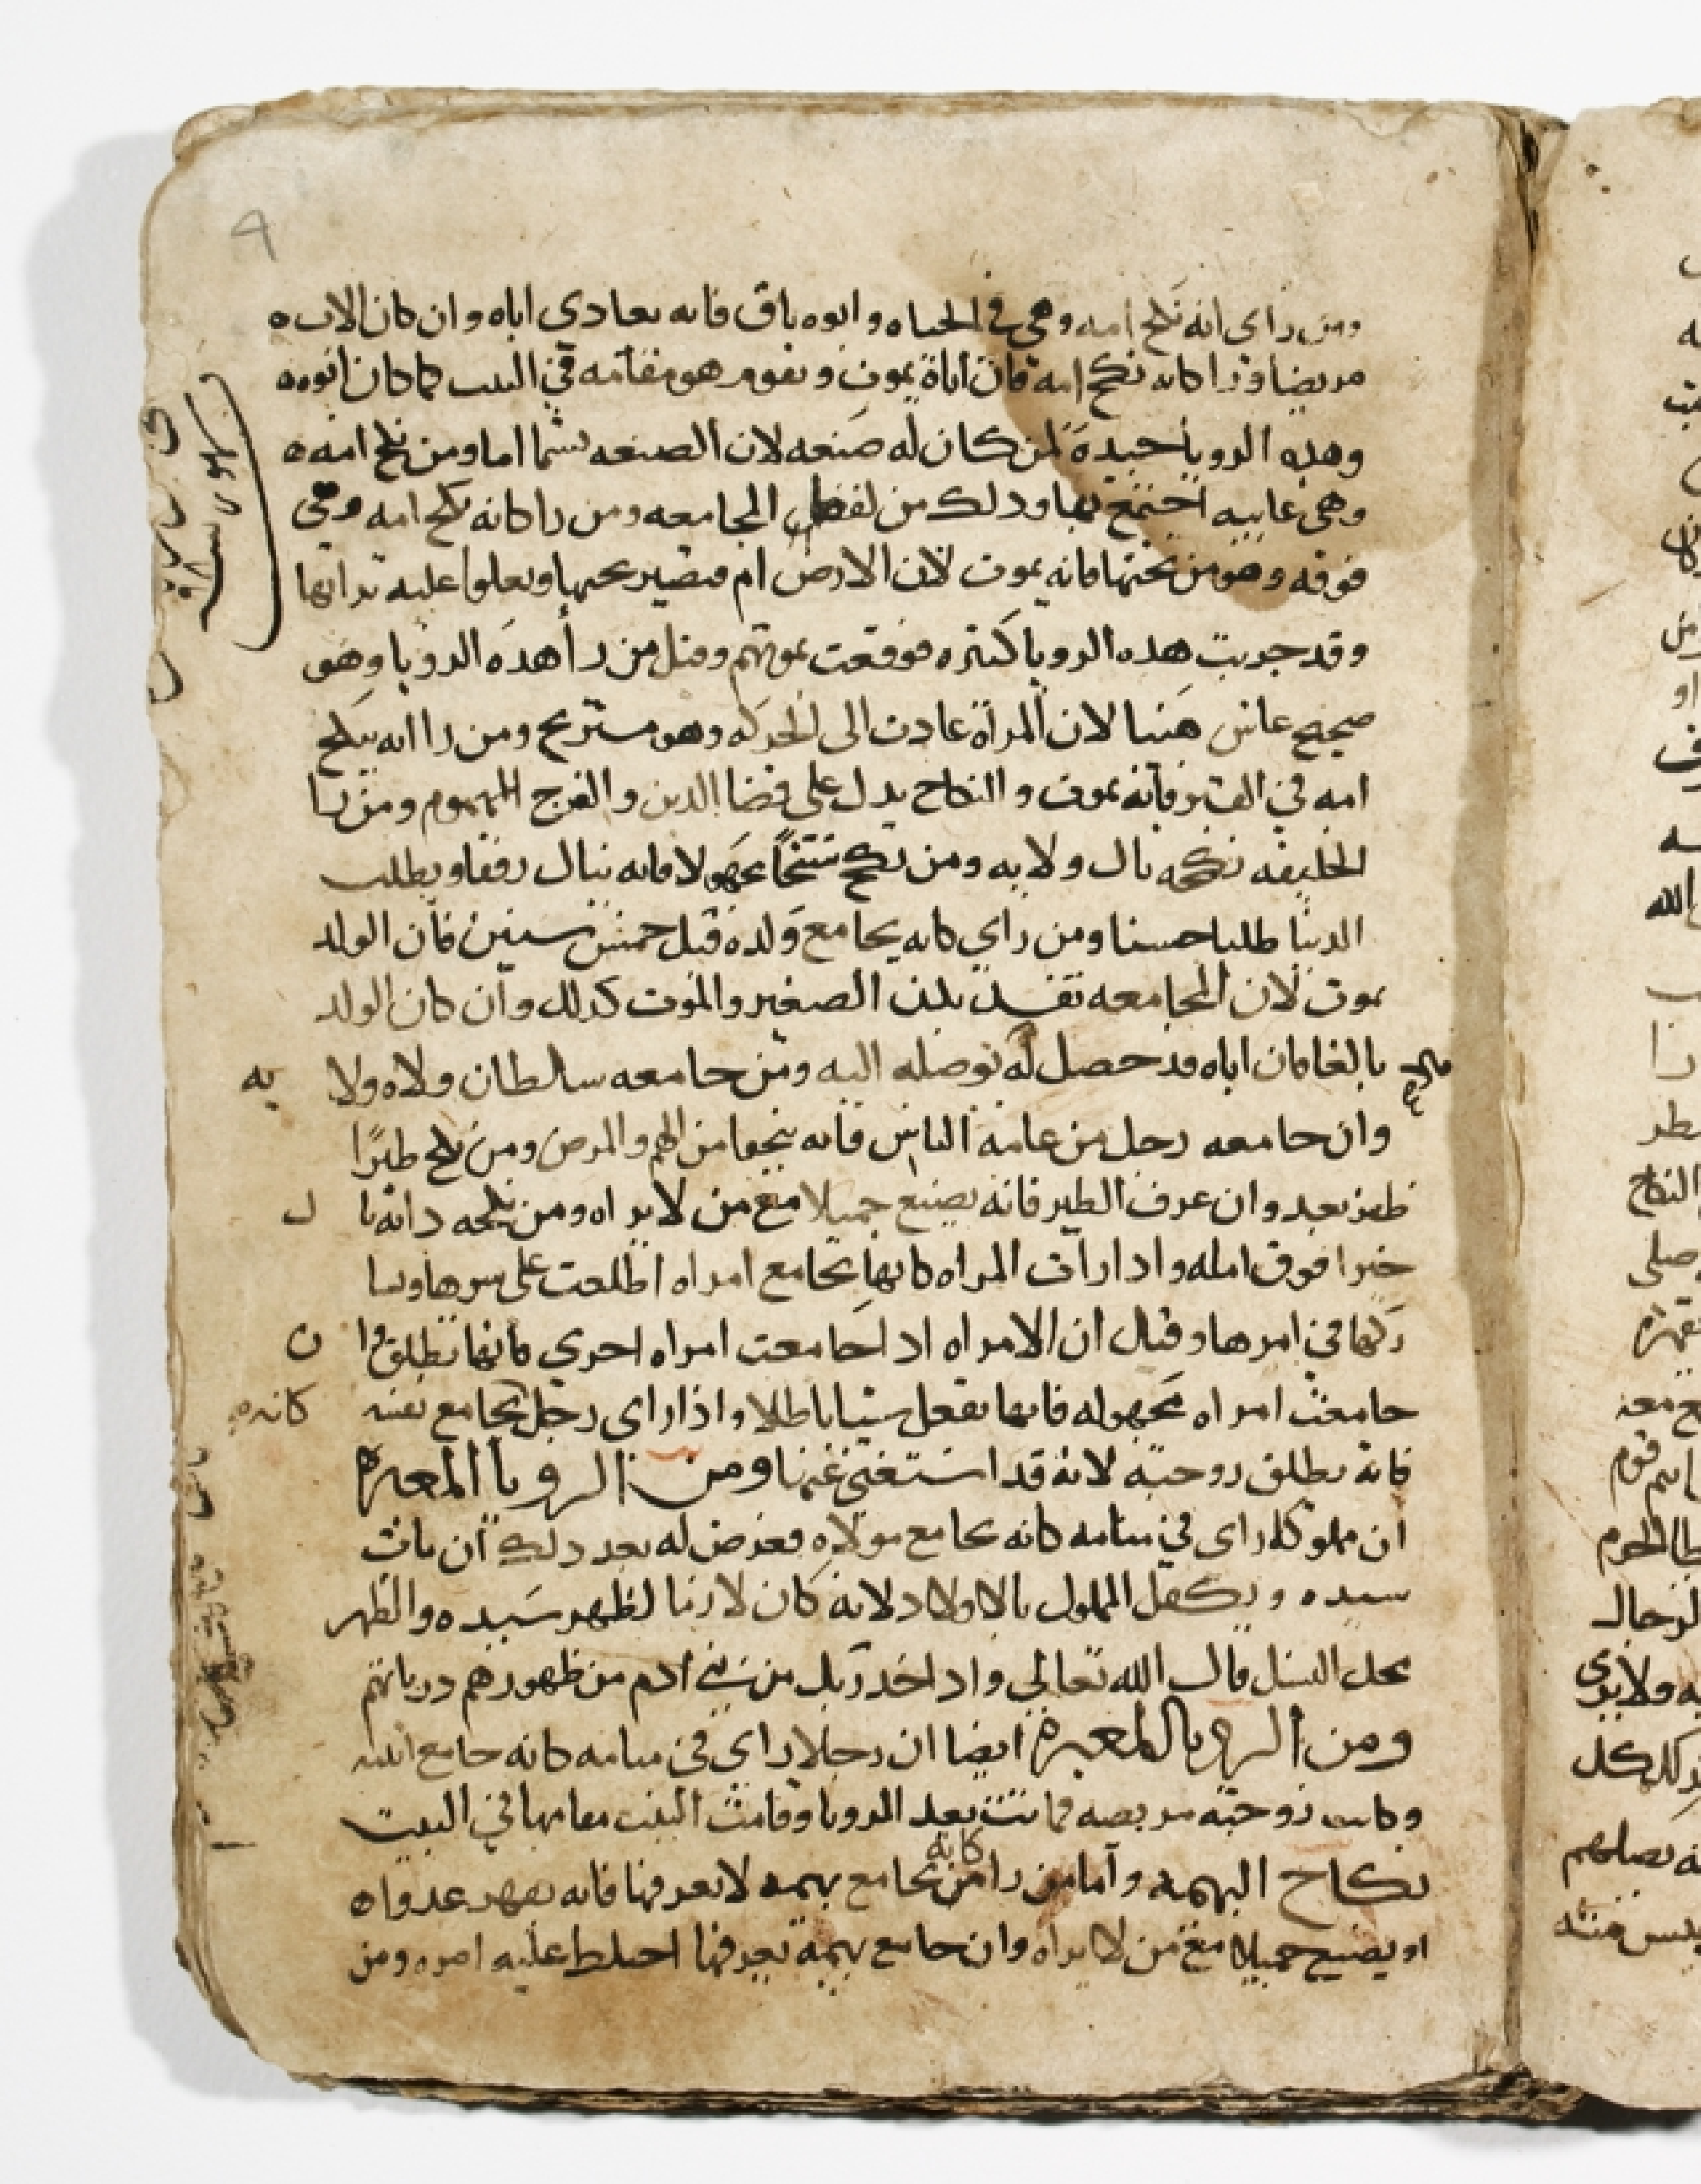 ومن راى انه نكح امه وهي في الحياه وابوه باق فانه يعادي اباه وان كان الاب
مريضا وراا كانه نكح امه فان اباه يموت ويقوم هو مقامه في البيت كما كان ابوه
وهذه الرويا جيده لمن كان له صنعه لان الصنعه تسما اما ومن نكح امه
وهي غايبه اجتمع بها وذلك من لفظ المجامعه ومن را كانه نكح امه وهي
فوقه وهو من تحتها فانه يموت لان الارض ام فيصير تحتها ويعلوا عليه ترابها
وقد جربت هذه الرويا كثيره فوقعت بموتهم وقيل من رأ هذه الرويا وهو
صحيح عاش هنيا لان المراة عادت الى الحركه وهو مستريح ومن راا انه ينكح
امه في القبر فانه يموت والنكاح يدل على قضا الدين والفرج المهموم ومن را
الخليفه نكحه نال ولايه ومن نكح شيخاً مجهولا فانه ينال رفقا ويطلب
الدنيا طلبا حسنا ومن راي كانه يجامع ولده قبل خمس سنين فان الولد
يموت لان المجامعه تفسد بدن الصغير والموت كذلك وان كان الولد
بالغا فان اباه قد حصل له توصله اليه ومن جامعه سلطان ولاه ولا يه
وان جامعه رجل من عامة الناس فانه ينجوا من الهم والمرض ومن نكح طيرًا
ظفر بعبد وان عرف الطير فانه يصنع جميلا مع من لا يراه ومن نكحه دابه نا ل
خيرا فوق امله واذا رات المراه كانها تجامع امراه اطلعت على سرها وشا
ركتها في امرها وقيل ان الامراه اذا جامعت امراه اخري فانها تطلق وا ن
جامعت امراه مجهوله فانها تفعل شيا باطلا واذا راى رجل يجامع نفسه كانه
فانه يطلق زوجته لانه قد استغنى عنها ومن الرويا المعبره
ان مملوكا راى في منامه كانه يجامع مولاه فعرض له بعد ذلك ان مات
سيده وتكفل المملوك بالاولاد لانه كان لازما لظهر سيده والظهر
محل النسل قال الله تعالي واذ اخذ ربك من بني ادم من ظهورهم ذرياتهم
ومن الرويا المعبره ايضا ان رجلا راى في منامه كانه جامع ابنته
وكانت زوجته مريضه فماتت بعد الرويا وقامت البنت مقامها في البيت
نكاح البهيمه واما من را كانه يجامع بهيمه لا يعرفها فانه يقهر عدواه
او يصنع جميلا مع من لا يراه وان جامع بهيمة يعرفها اختلط عليه امره ومن